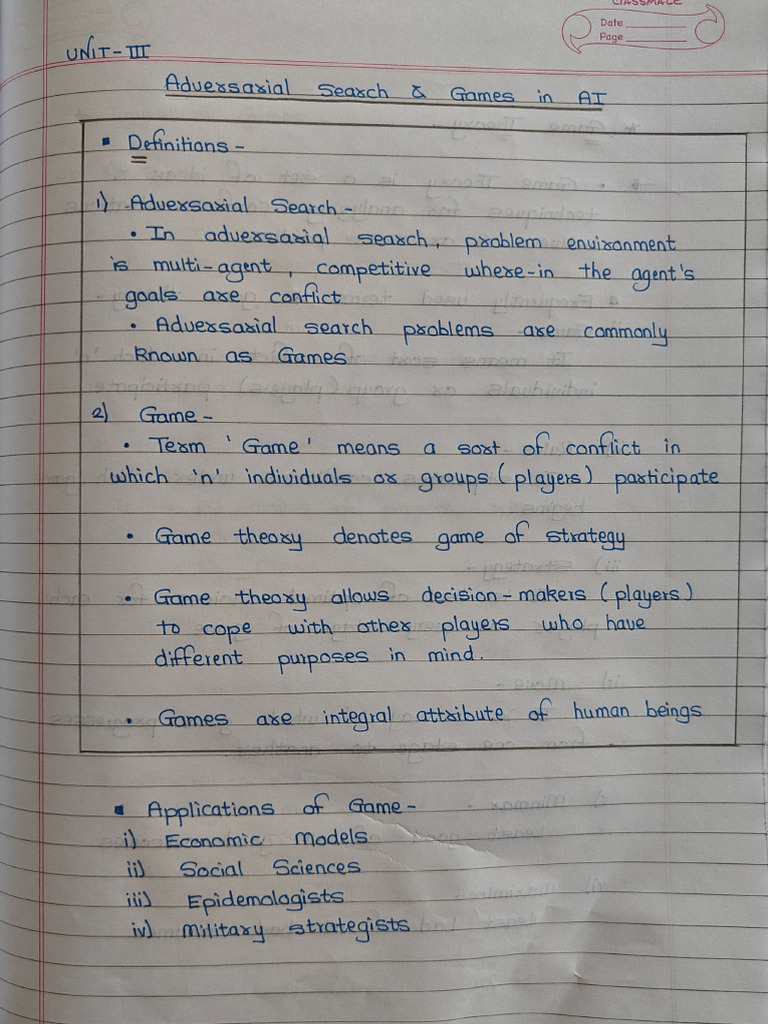 CLASSMATE
Date
Page
UNIT-III
Adversarial Search & Games in AI
▪ Definitions -
1) Adversarial Search -
• In adversarial search, problem environment
is multi-agent, competitive where-in the agent's
goals are conflict
• Adversarial search problems are commonly
known as Games
2) Game -
• Term 'Game' means a sort of conflict in
which 'n' individuals or groups (players) participate
• Game theory denotes game of strategy
• Game theory allows decision-makers (players)
to cope with other players who have
different purposes in mind.
• Games are integral attribute of human beings
▪ Applications of Game -
i) Economic Models
ii) Social Sciences
iii) Epidemologists
iv) Military strategists